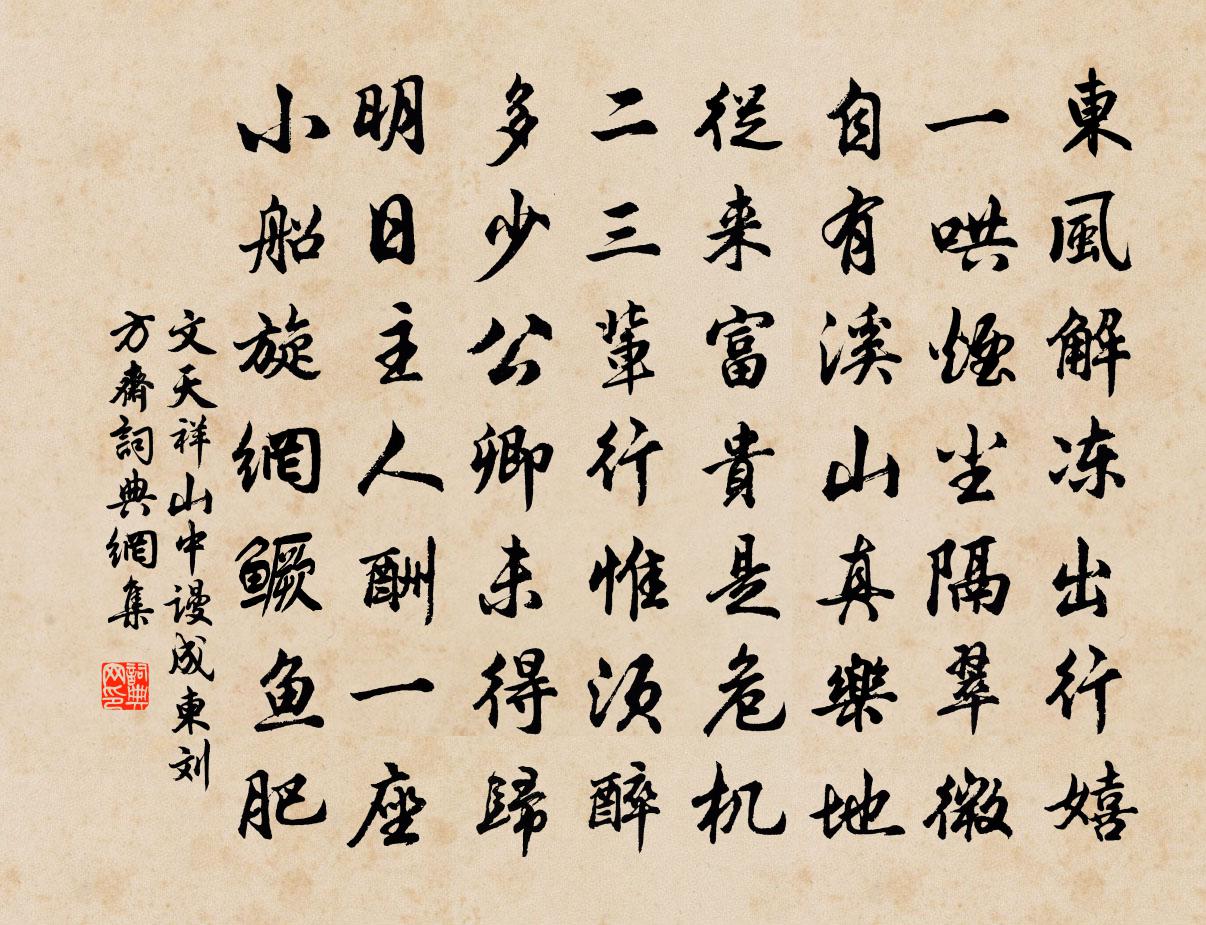 東風解冻出行嬉
一哄煙尘隔翠微
自有溪山真樂地
從来富貴是危机
二三輩行惟須醉
多少公卿未得歸
明日主人酬一座
小船旋網鳜鱼肥
文天祥山中谩成東刘
方齋詞典網集
詞典
网印